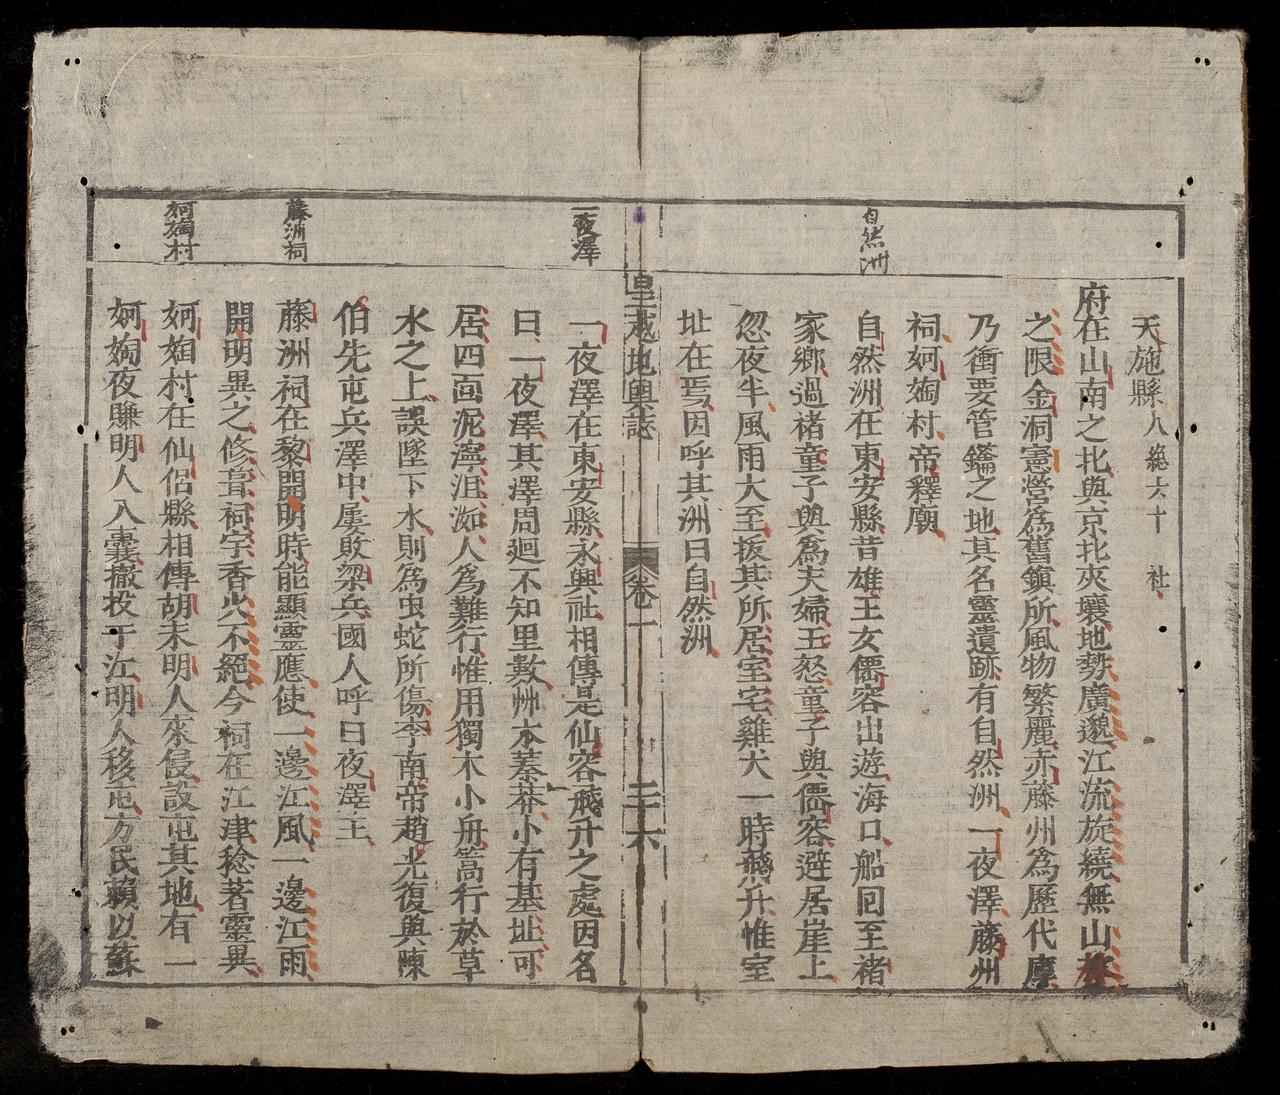 天施縣 八總六十 社
府在山南之北與京北夾壤地勢廣邈江流旋繞無山林
之限金洞憲營爲舊鎭所風物繁麗赤藤州爲歷代
乃衝要管鑰之地其名靈遺跡有自然洲一夜澤藤州
祠婀㛦村帝釋廟
自然洲
自然洲在東安縣昔雄王女儒容出遊海口船囘至褚
家鄉過褚童子與爲夫婦王怒童子與儒容避居崖上
忽夜半風雨大至拔其所居室宅雞犬一時飛升惟室
址在焉因呼其洲曰自然洲
皇越地輿誌 卷一 二十六
一夜澤
一夜澤在東安縣永興社相傳是仙容飛升之處因名
曰一夜澤其澤周廻不知里數艸木蓁莽小有基址可
居四面泥濘沮洳人爲難行惟用獨木小舟篙行於草
水之上誤墜下水則爲虫蛇所傷李南帝趙光復與陳
伯先屯兵澤中屢敗梁兵國人呼曰夜澤王
藤洲祠
藤洲祠在黎開明時能顯靈應使一邊江風一邊江雨
開明異之修葺祠宇香火不絕今祠在江津稔著靈異
婀㛦村
婀㛦村在仙侶縣相傳胡末明人來侵設屯其地有一
婀㛦夜賺明人入囊撤投于江明人移屯方民賴以蘇